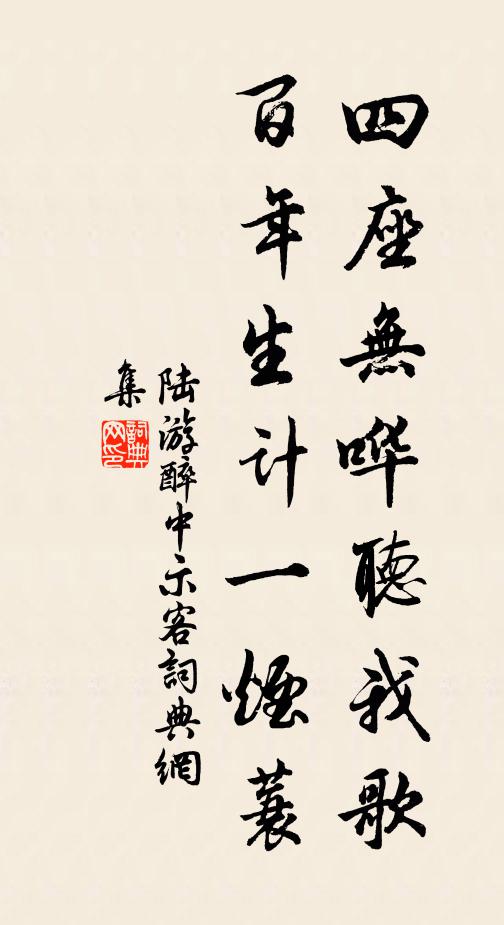 四座無哗聽我歌
百年生计一煙蓑
陆游醉中示客詞典網
集
詞典网印